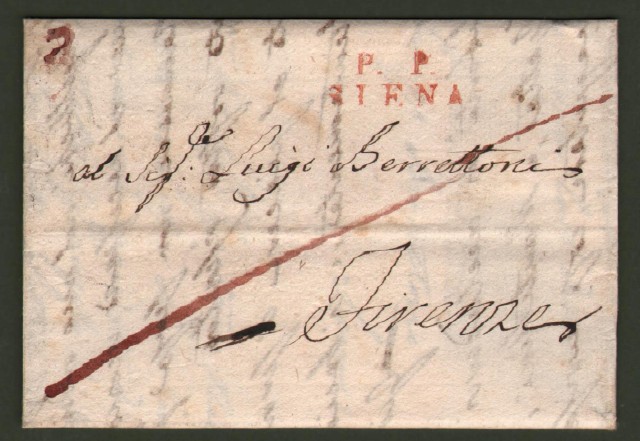 2
P. P.
SIENA
al Sig.re Luigi Berrettoni
Firenze